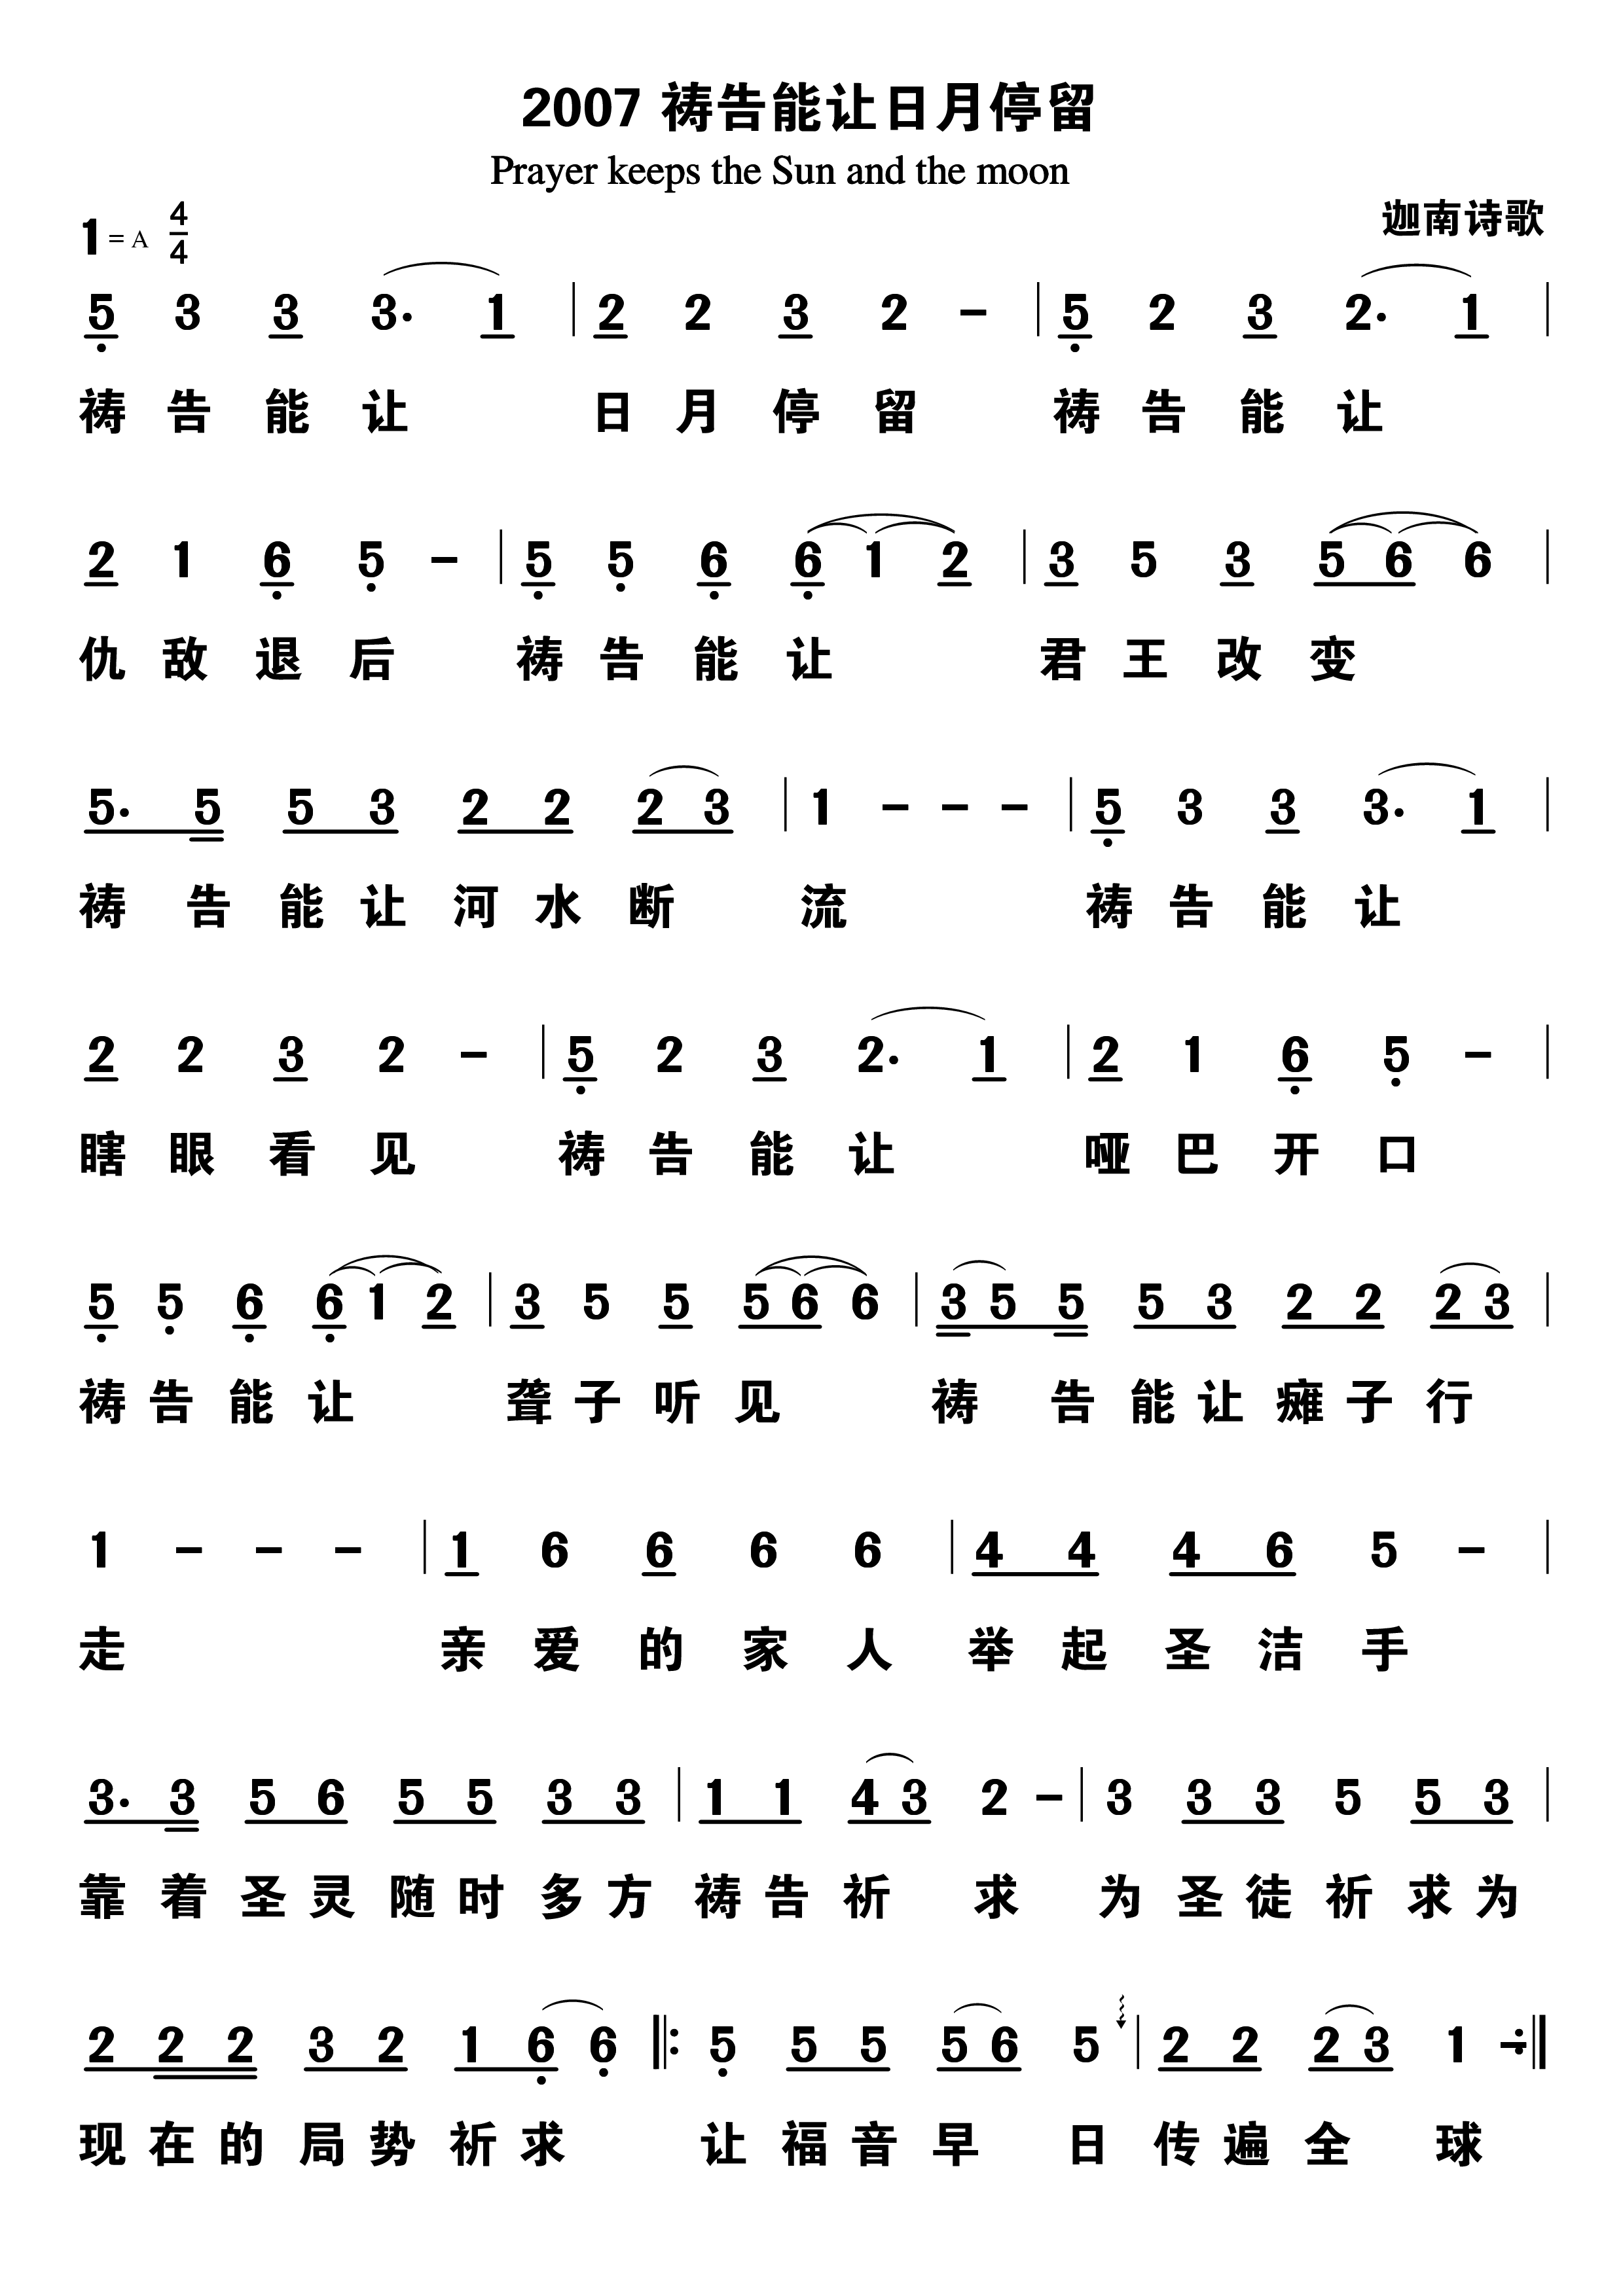 2007 祷告能让日月停留
Prayer keeps the Sun and the moon
1 = A 4/4
迦南诗歌
5 3 3 3· 1 | 2 2 3 2 – | 5 2 3 2· 1 |
祷告能让 日月停留 祷告能让
2 1 6 5 – | 5 5 6 6 1 2 | 3 5 3 5 6 6 |
仇敌退后 祷告能让 君王改变
5· 5 5 3 2 2 2 3 | 1 – – – | 5 3 3 3· 1 |
祷告能让河水断 流 祷告能让
2 2 3 2 – | 5 2 3 2· 1 | 2 1 6 5 – |
瞎眼看见 祷告能让 哑巴开口
5 5 6 6 1 2 | 3 5 5 5 6 6 | 3 5 5 5 3 2 2 2 3 |
祷告能让 聋子听见 祷告能让瘫子行
1 – – – | 1 6 6 6 6 | 4 4 4 6 5 – |
走 亲爱的家人 举起圣洁手
3· 3 5 6 5 5 3 3 | 1 1 4 3 2 – | 3 3 3 5 5 3 |
靠着圣灵随时多方 祷告祈求 为圣徒祈求为
2 2 2 3 2 1 6 6 ‖: 5 5 5 5 6 5 | 2 2 2 3 1 – :‖
现在的局势祈求 让福音早日 传遍全球